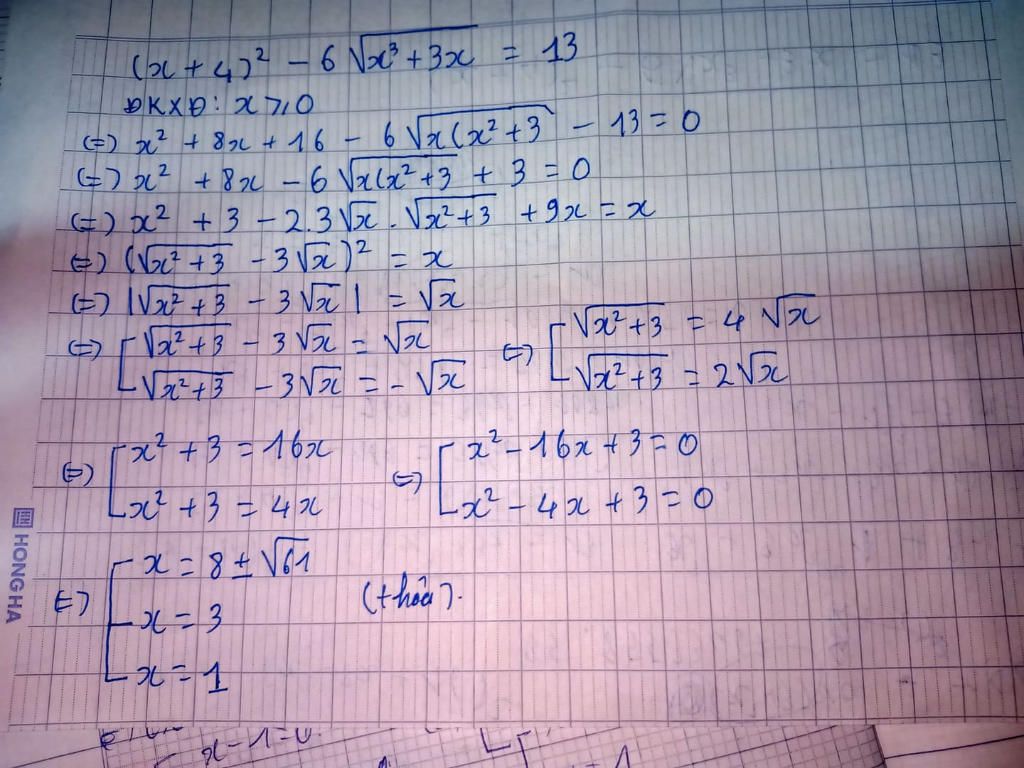 (x + 4)² - 6 √(x³ + 3x) = 13
ĐKXĐ: x ⩾ 0
(=) x² + 8x + 16 - 6 √(x(x² + 3) - 13 = 0
(=) x² + 8x - 6 √(x(x² + 3) + 3 = 0
(=) x² + 3 - 2.3√x . √(x² + 3) + 9x = x
(=) (√(x² + 3) - 3√x)² = x
(=) |√(x² + 3) - 3√x| = √x
(=) [ √(x² + 3) - 3√x = √x
√(x² + 3) - 3√x = - √x
(=) [ √(x² + 3) = 4 √x
√(x² + 3) = 2√x
(=) [ x² + 3 = 16x
x² + 3 = 4x
(=) [ x² - 16x + 3 = 0
x² - 4x + 3 = 0
(=) [ x = 8 ± √61
x = 3
x = 1
(thỏa).
HONG HA
x - 1 = 0